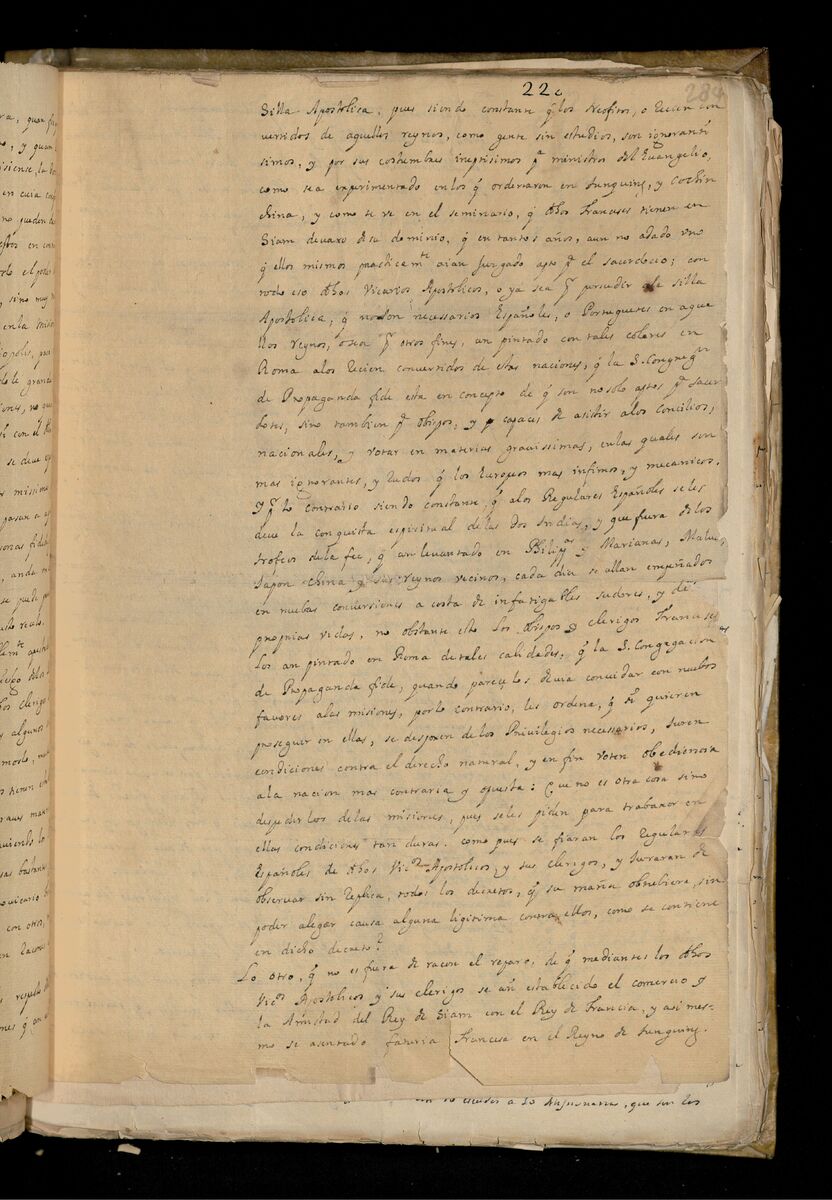 220
284
Silla Apostolica; pues siendo constante q̃ los Neofitos, o recien con
vertidos de aquellos reynos, como gente sin estudios, son ignoranti
simos, y por sus costumbres ineptisimos pª ministros del Euangelio,
como se a experimentado en los q̃ ordenaron en Tunquing, y Cochin
china, y como se ve en el seminario, q̃ dhos Franceses tienen en
Siam devaxo de su dominio, q̃ en tantos años, aun no a dado uno
q̃ ellos mismos practicamte aian Juzgado apto pª el sacerdocio; con
todo eso dhos Vicarios Apostolicos, o ya sea pr persuadir a la silla
Apostolica, q̃ no son necessarios Españoles, o Portugueses en aque
llos reynos, o sea pr otros fines, an pintado con tales colores en
Roma a los recien convertidos de estas naciones, q̃ la S. Congregon
de Propaganda fide esta en concepto de q̃ son no solo aptos pª sacer
dotes, sino tambien pª obispos, y capaces de asistir a los Concilios,
nacionales, y votar en materias gravissimas, en las quales son
mas ignorantes, y rudos q̃ los Europeos mas infimos, y mecanicos.
Y pr lo contrario siendo constante, q̃ a los Regulares Españoles se les
deve la conquista espiritual de las dos Indias, y que fuera de los
trofeos de la fee, q̃ an levantado en Philipas y Marianas, Maluc,
Japon China y sus reynos vecinos, cada dia se allan empeñados
en nuebas conversiones a costa de infatigables sudores, y de
proprias vidas, no obstante esto los obispos y clerigos Franceses
los an pintado en Roma de tales calidades, q̃ la S. Congregacion
de Propaganda fide, quando parece les devia convidar con nuebos
favores a las misiones, por lo contrario, les ordena, q̃ si quieren
proseguir en ellas, se despojen de los Privilegios necessarios, Juren
condiciones contra el derecho natural, y en fin voten obediencia
a la nacion mas contraria y opuesta: Que no es otra cosa sino
despedirlos de las misiones, pues se les piden para trabaxar en
ellas condiciones tan duras. como pues se fiaran los Regulares
Españoles de dhos Vicos Apostolicos, y sus clerigos, y Juraran de
observar sin replica, todos los decretos, q̃ su mana obtubiere, sin
poder alegar causa alguna ligitima contra ellos, como se contiene
en dicho decreto?
Lo otro, q̃ no es fuera de racon el reparo, de q̃ mediantes los dhos
Vicos Apostolicos y sus clerigos se añ establecido el comercio y
la Amistad del Rey de Siam con el Rey de Francia, y asi mes-
mo se asentado fatoria Francesa en el Reyno de Tunquing.
que son los